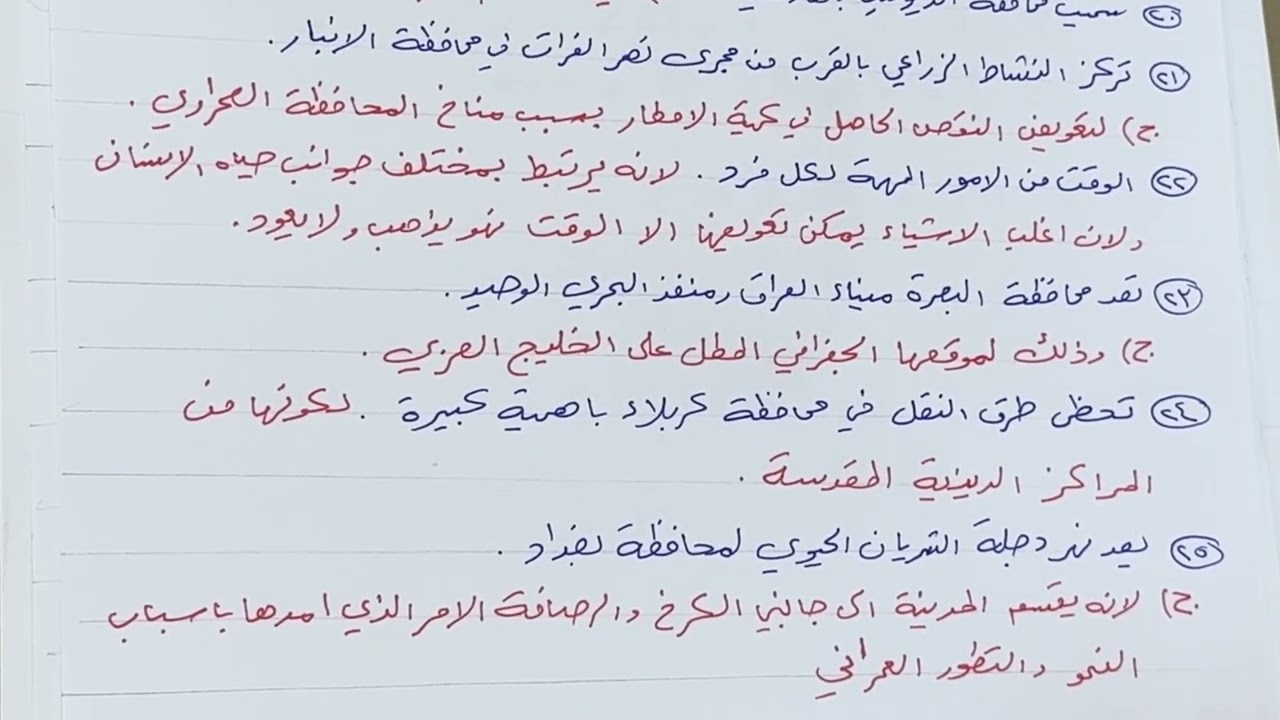 ٢٠
٢١ تركز النشاط الزراعي بالقرب من مجرى نهر الفرات في محافظة الانبار.
ج) لتعويض النقص الحاصل في كمية الامطار بسبب مناخ المحافظة الصحراوي.
٢٢ الوقت من الامور المهمة لكل فرد. لانه يرتبط بمختلف جوانب حياه الانسان
ولان اغلب الاشياء يمكن تعويضها الا الوقت فهو يذهب ولا يعود.
٢٣ تعد محافظة البصرة ميناء العراق ومنفذ البحري الوحيد.
ج) وذلك لموقعها الجغرافي المطل على الخليج العربي.
٢٤ تحظى طرق النقل في محافظة كربلاء باهمية كبيرة. لكونها من
المراكز الدينية المقدسة.
٢٥ يعد نهر دجلة الشريان الحيوي لمحافظة بغداد.
ج) لانه يقسم المدينة الى جانبي الكرخ والرصافة الامر الذي امدها باسباب
النمو والتطور العمراني